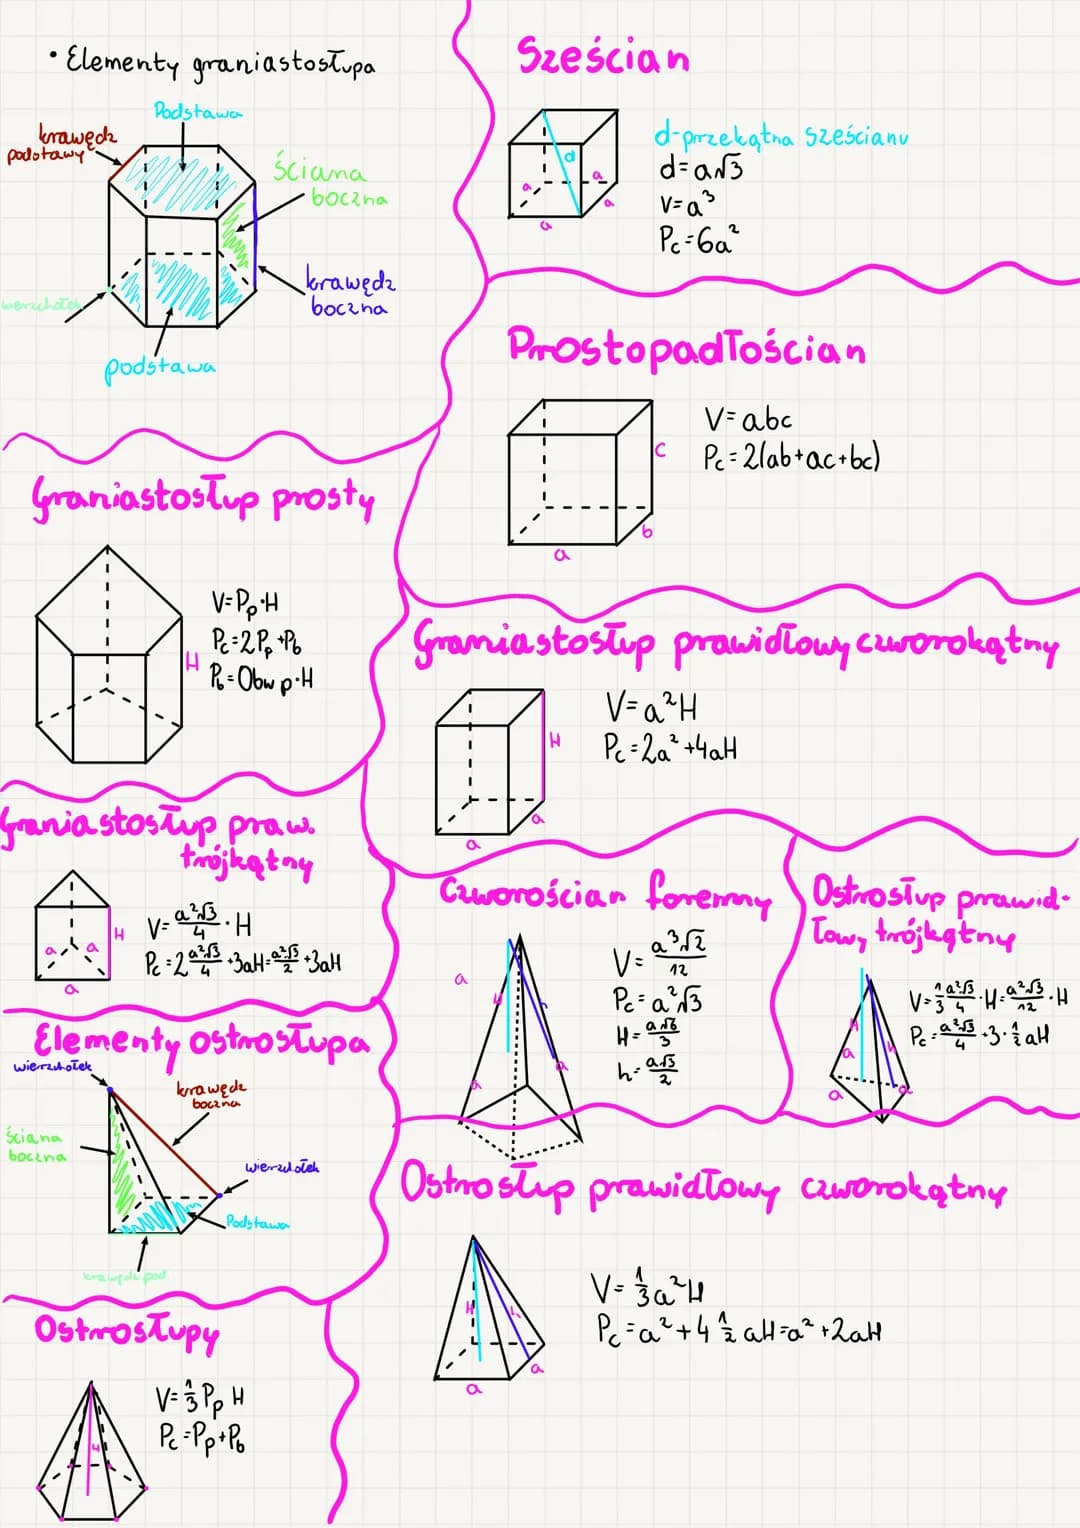 • Elementy graniastosłupa
Podstawa
krawędź
podstawy
ściana
boczna
krawędź
boczna
wierzchołek
podstawa
Sześcian
d
a
a
a
a
d-przekątna sześcianu
d=a√3
V=a³
Pc=6a²
Prostopadłościan
c
b
a
V=abc
Pc=2(ab+ac+bc)
Graniastosłup prosty
H
V=Pp·H
Pc=2Pp+Pb
Pb=Obw p·H
Graniastosłup prawidłowy czworokątny
H
a
a
V=a²H
Pc=2a²+4aH
Graniastosłup praw.
trójkątny
H
a
a
a
V=a²√3/4·H
Pc=2a²√3/4+3aH=a²√3/2+3aH
Czworościan foremny
a
H
h
a
a
V=a³√2/12
Pc=a²√3
H=a√6/3
h=a√3/2
Ostrosłup prawid-
łowy trójkątny
H
h
a
a
a
V=1/3 a²√3/4·H=a²√3/12·H
Pc=a²√3/4+3·1/2aH
Elementy ostrosłupa
wierzchołek
krawędź
boczna
ściana
boczna
wierzchołek
Podstawa
krawędź pod
Ostrosłup prawidłowy czworokątny
H
h
a
a
V=1/3a²H
Pc=a²+4 1/2 aH=a²+2aH
Ostrosłupy
H
V=1/3 Pp H
Pc=Pp+Pb